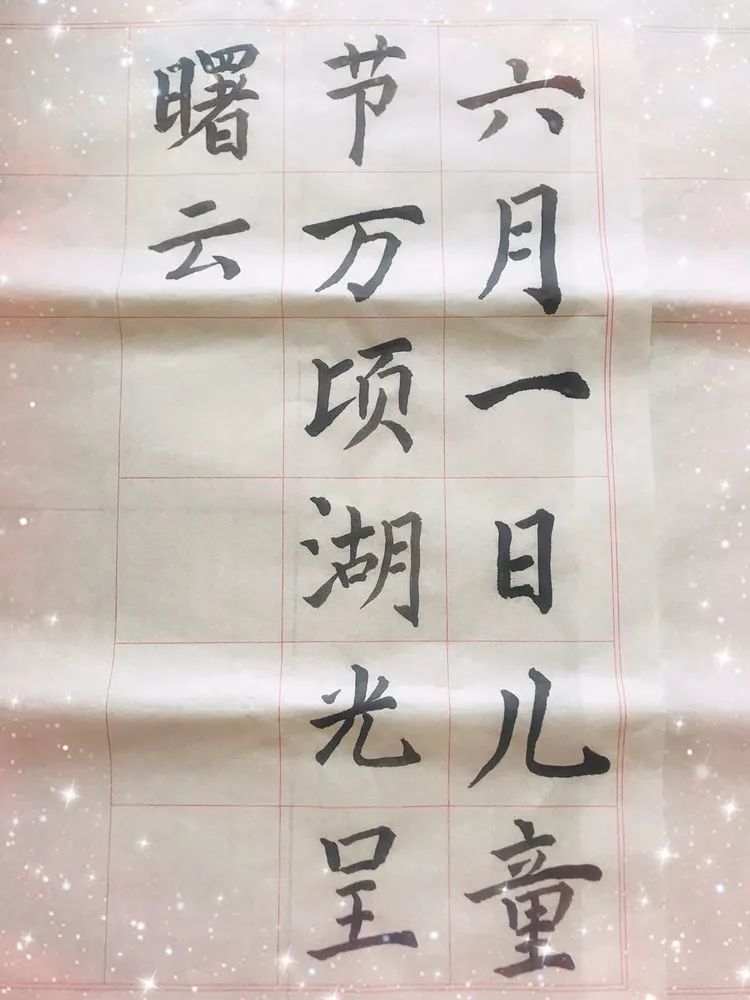 六月一日儿童
节万顷湖光呈
曙云